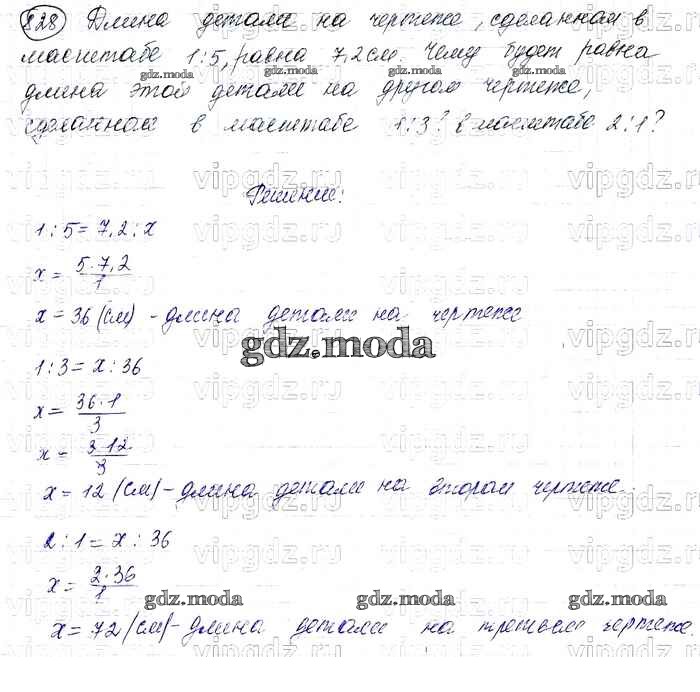 828 Длина детали на чертеже, сделанном в
масштабе 1:5, равна 7,2 см. Чему будет равна
gdz.moda gdz.moda
длина этой детали на другом чертеже,
сделанном в масштабе 1:3? в масштабе 2:1?
Решение:
1 : 5 = 7,2 : x
x = 5·7,2 / 1
x = 36 (см) - длина детали на чертеже
gdz.moda
1 : 3 = x : 36
x = 36·1 / 3
x = 3·12 / 3
x = 12 (см) - длина детали на втором чертеже.
2 : 1 = x : 36
x = 2·36 / 1
gdz.moda gdz.moda gdz.moda
x = 72 (см) - длина детали на третьем чертеже.
vipgdz.ru